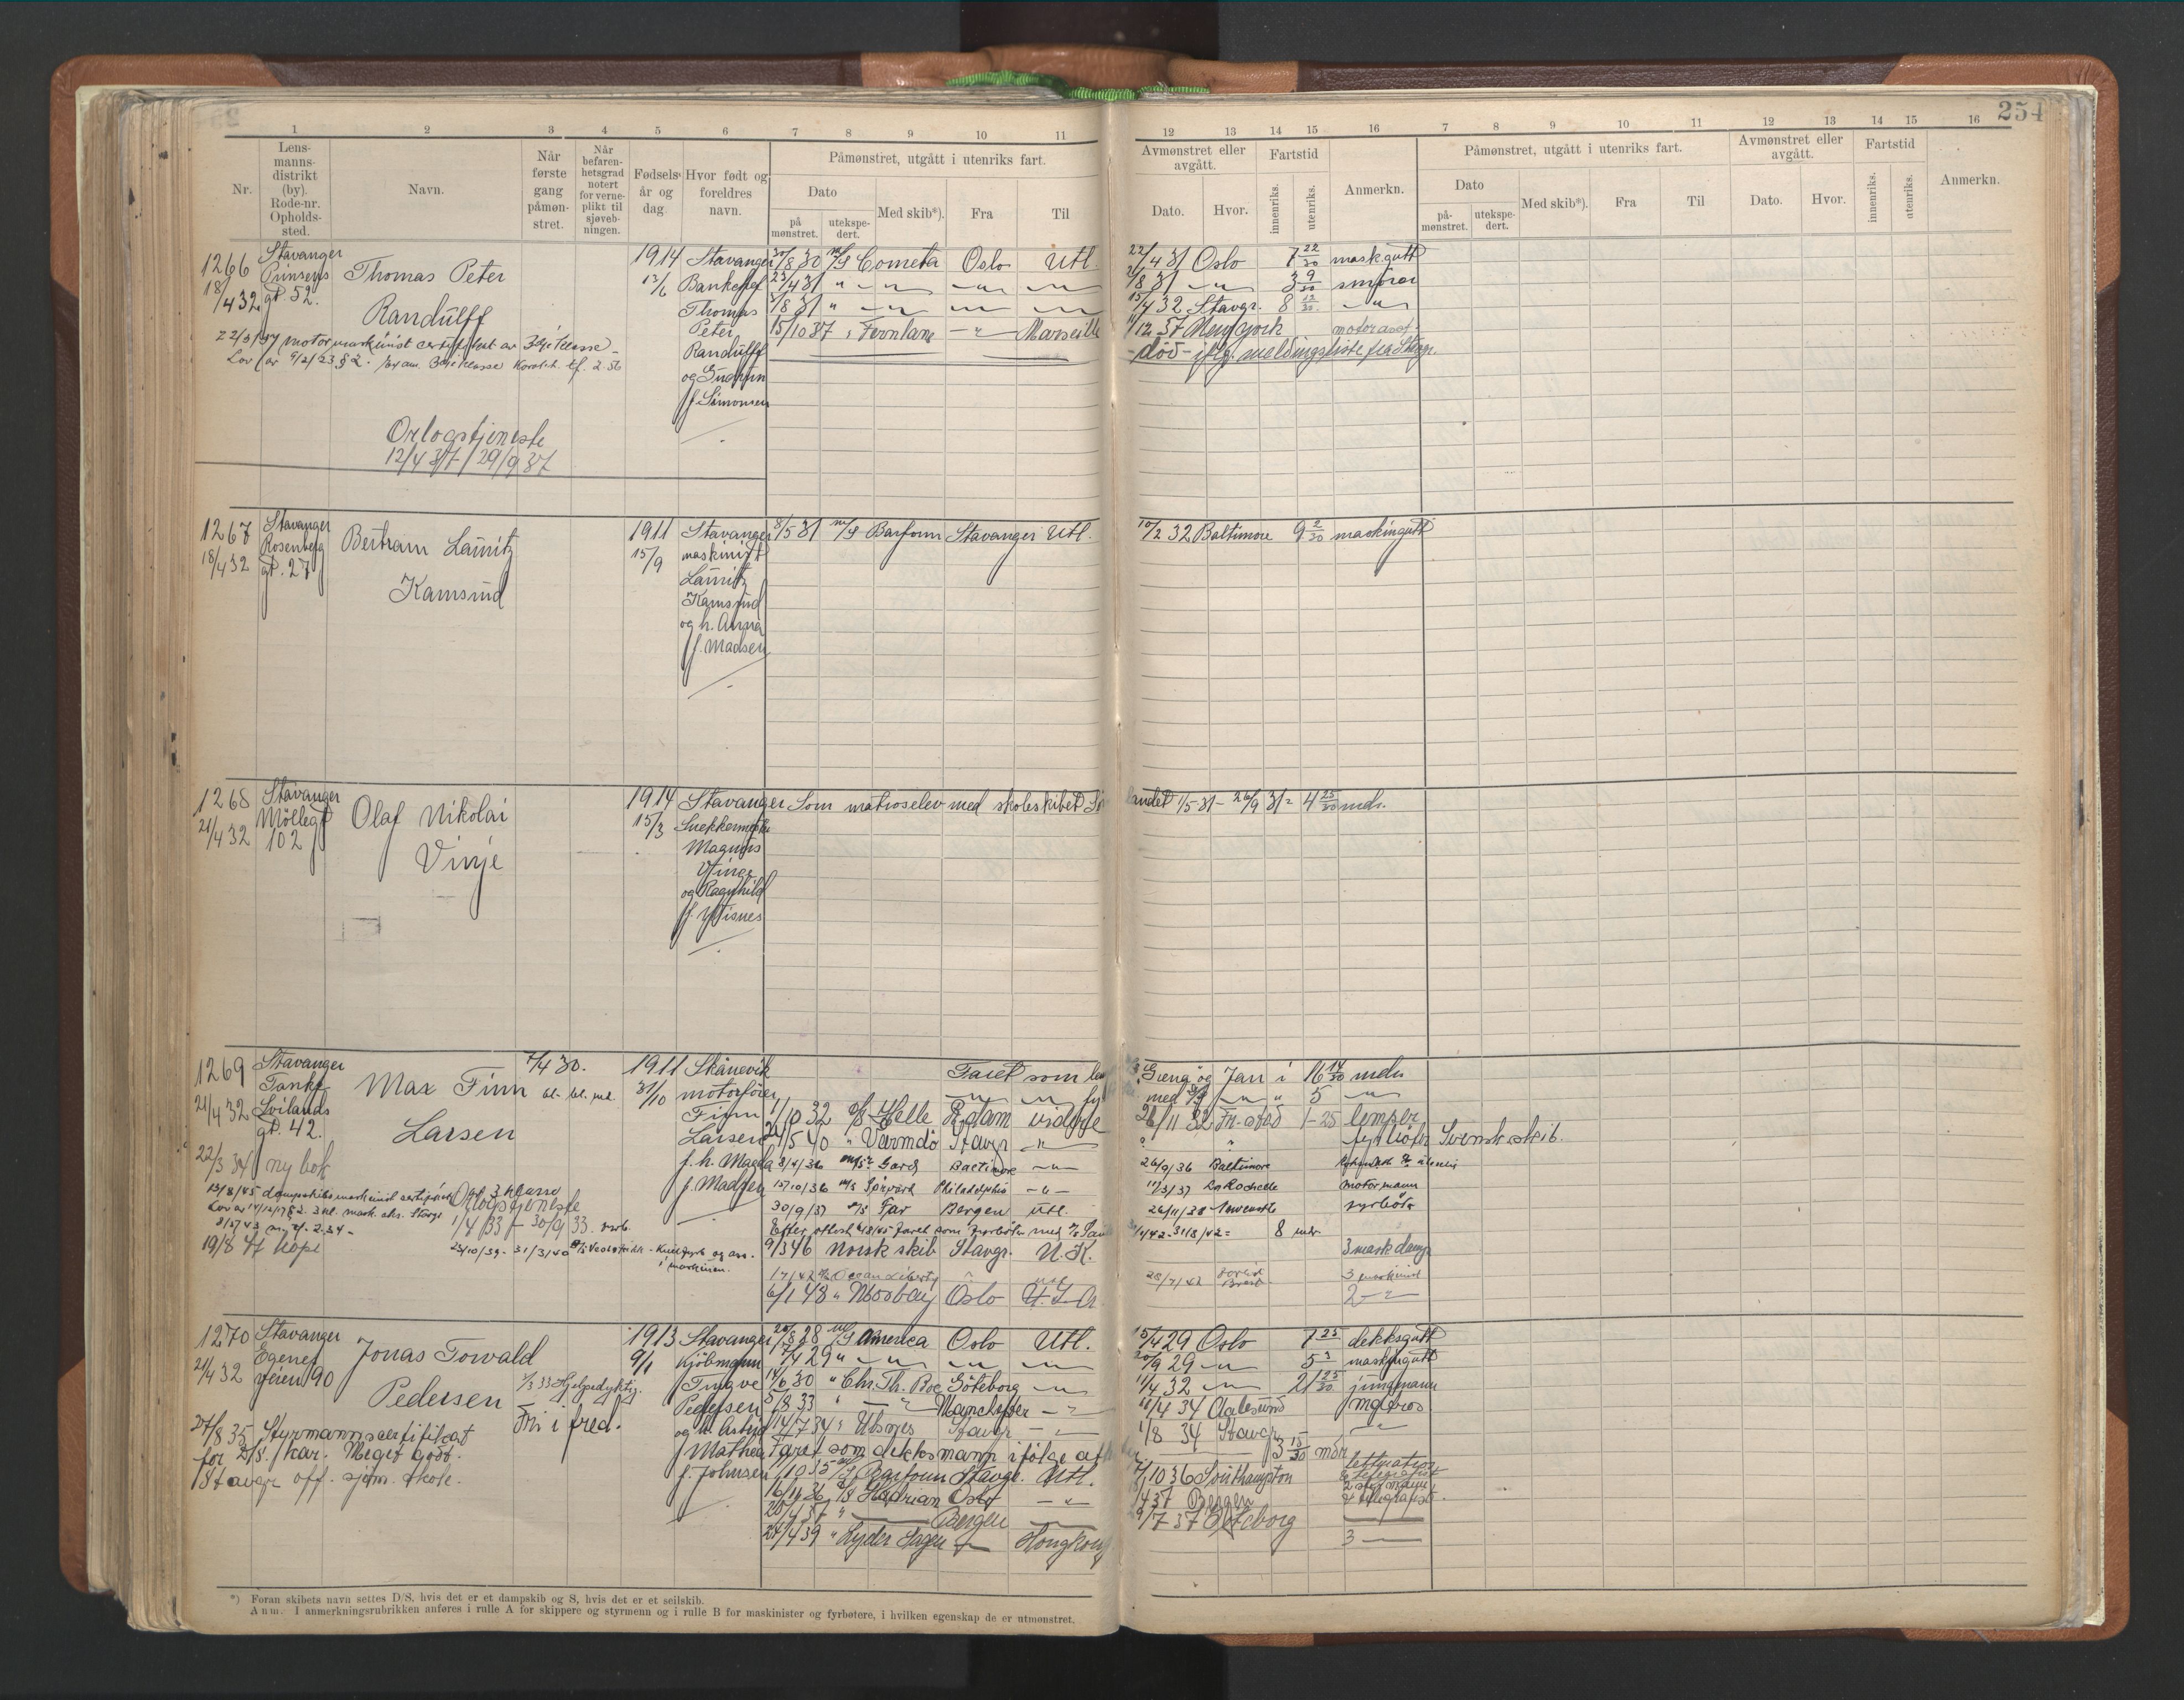 254
1 2 3 4 5 6 7 8 9 10 11 12 13 14 15 16 7 8 9 10 11 12 13 14 15 16
Nr.
Lens-
manns-
distrikt
(by).
Rode-nr.
Opholds-
sted.
Navn.
Når
første
gang
påmøn-
stret.
Når
befaren-
hetsgrad
notert
for verne-
plikt til
sjøveb-
ningen.
Fødsels-
år og
dag.
Hvor født og
foreldres
navn.
Påmønstret, utgått i utenriks fart.
Dato
på
mønstret.
utekspe-
dert.
Med skib*).
Fra
Til
Avmønstret eller
avgått.
Dato.
Hvor.
Fartstid
innenriks.
utenriks.
Anmerkn.
Påmønstret, utgått i utenriks fart.
Dato
på-
mønstret.
utekspe-
dert.
Med skib*).
Fra
Til
Avmønstret eller
avgått.
Dato.
Hvor.
Fartstid
innenriks.
utenriks.
Anmerkn.
1266
18/4 32
Stavanger
Prinsens
gt 52.
Thomas Peter
Randulff
22/3/34 motormaskinist certifikat av 3dje klasse
Lov av 9/2/23 § 2.
Orlogstjeneste
12/4 37 - 29/9 37
1914
13/6
Stavanger
Thomas
Peter
Randulff
og Gudrun
f. Simonsen
30/8 30 m/S Cometa Oslo Utl. 22/4 31 Oslo 7 22/30 maskgutt
23/4 31 " — " — — " — — " — 2/8 31 — " — 3 9/30 smører
3/8 31 " — " — — " — — " — 15/4 32 Stavgr. 8 12/30 — " —
15/10 37 " Fernlane — " — Marseille 1/12 37 New York motorasst.
- død - iflg. meldingsliste fra Stvgr.
1267
18/4 32
Stavanger
Rosenberg
gt. 27
Bertram Lauritz
Kamsund
1911
15/9
Stavanger
maskinist
Lauritz
Kamsund
og h. Anna
f. Madsen
8/5 31 m/S Barfonn Stavanger Utl. 10/2 32 Baltimore 9 2/30 maskingutt
1268
21/4 32
Stavanger
Møllegt
102
Olaf Nikolai
Vinje
1914
15/3
Stavanger
Magnus
Vinje
og Ragnhild
Som matroselev med skoleskibet Sørlandet 1/5 31 - 26/9 31 = 4 25/30 mdr.
1269
21/4 32
Stavanger
Tanke
Svilands
gt. 42.
22/3 34 ny bok
Max Finn
Larsen
7/4 30.
1911
31/10
Skånevik
motorfører
Finn
Larsen
f. h. Magda
f. Madsen
13/8/45 dampskibsmaskinist certifikat
3 klasse
Orlogstjeneste
1/4 33 - 30/9 33
19/8 47 kopi
23/10/39 - 31/3/40
i maskinen.
Faret som
Jan i 16 14/30 mdr
med — " — " 5 — " —
1/10 32 Helle R.dam videre 26/11 32 Fr.stad 1-25 lemper
" Värmdö Stavgr — " — fyrbøter Svensk skib.
Gard Baltimore — " — 26/9/36 Baltimore
15/10/36 m/s Spurt Philadelphia — " — 11/3/37 La Rochelle motormann
30/9/37 Far Bergen Utl. 26/11/38 Newcastle fyrbøter
8 mdr
9/3 46 Norsk skib Stavgr. U.K. 3 mask damp
Ocean Liberty 28/7/47 Brest 3 maskinist
6/1 48 " Mosbay Oslo U.S.A. 2 — " —
1270
21/4 32
Stavanger
Egenes
veien 90
Jonas Towald
Pedersen
1/3 33 Hjelpedyktig.
Fri i fred.
27/8 35 Styrmannscertifikat
for D/S. / kar. Meget godt.
Stavgr off. sjøm. skole.
1913
9/1
Stavanger
Kjøbmann
Yngve
Pedersen
og h. Astrid
Mathea
f. Johnsen
20/8 28 m/S America Oslo Utl. 15/4 29 Oslo 7 25 dekksgutt
17/4 29 " — " — — " — — " — 20/9 29 — " — 5 3 maskingutt
14/6 30 " Chr. Th. Boe Göteborg — " — 11/4 32 — " — 21 25/30 jungmann
5/8 33 " — " — Manchester — " — 18/4 34 Aalesund matros
14/7 34 " Utsnes Stavgr — " — 1/8 34 Stavgr — " —
Faret som dekksmann ifølge att 3 15/30 mdr
1/10 35 m/S Barfonn Stavgr. Utl. 7/10 36 Southampton lettmatros & telegrafist
16/11 36 D/S Hadrian Oslo — " — 14 37 Bergen 2 styrmann & telegrafist.
20/4 37 " — Bergen — 9/7 37 Göteborg —
24/4 39 " Lyder Sagen — Hongkong 3 —
*) Foran skibets navn settes D/S, hvis det er et dampskib og S, hvis det er et seilskib.
Anm. I anmerkningsrubrikken anføres i rulle A for skippere og styrmenn og i rulle B for maskinister og fyrbøtere, i hvilken egenskap de er utmønstret.